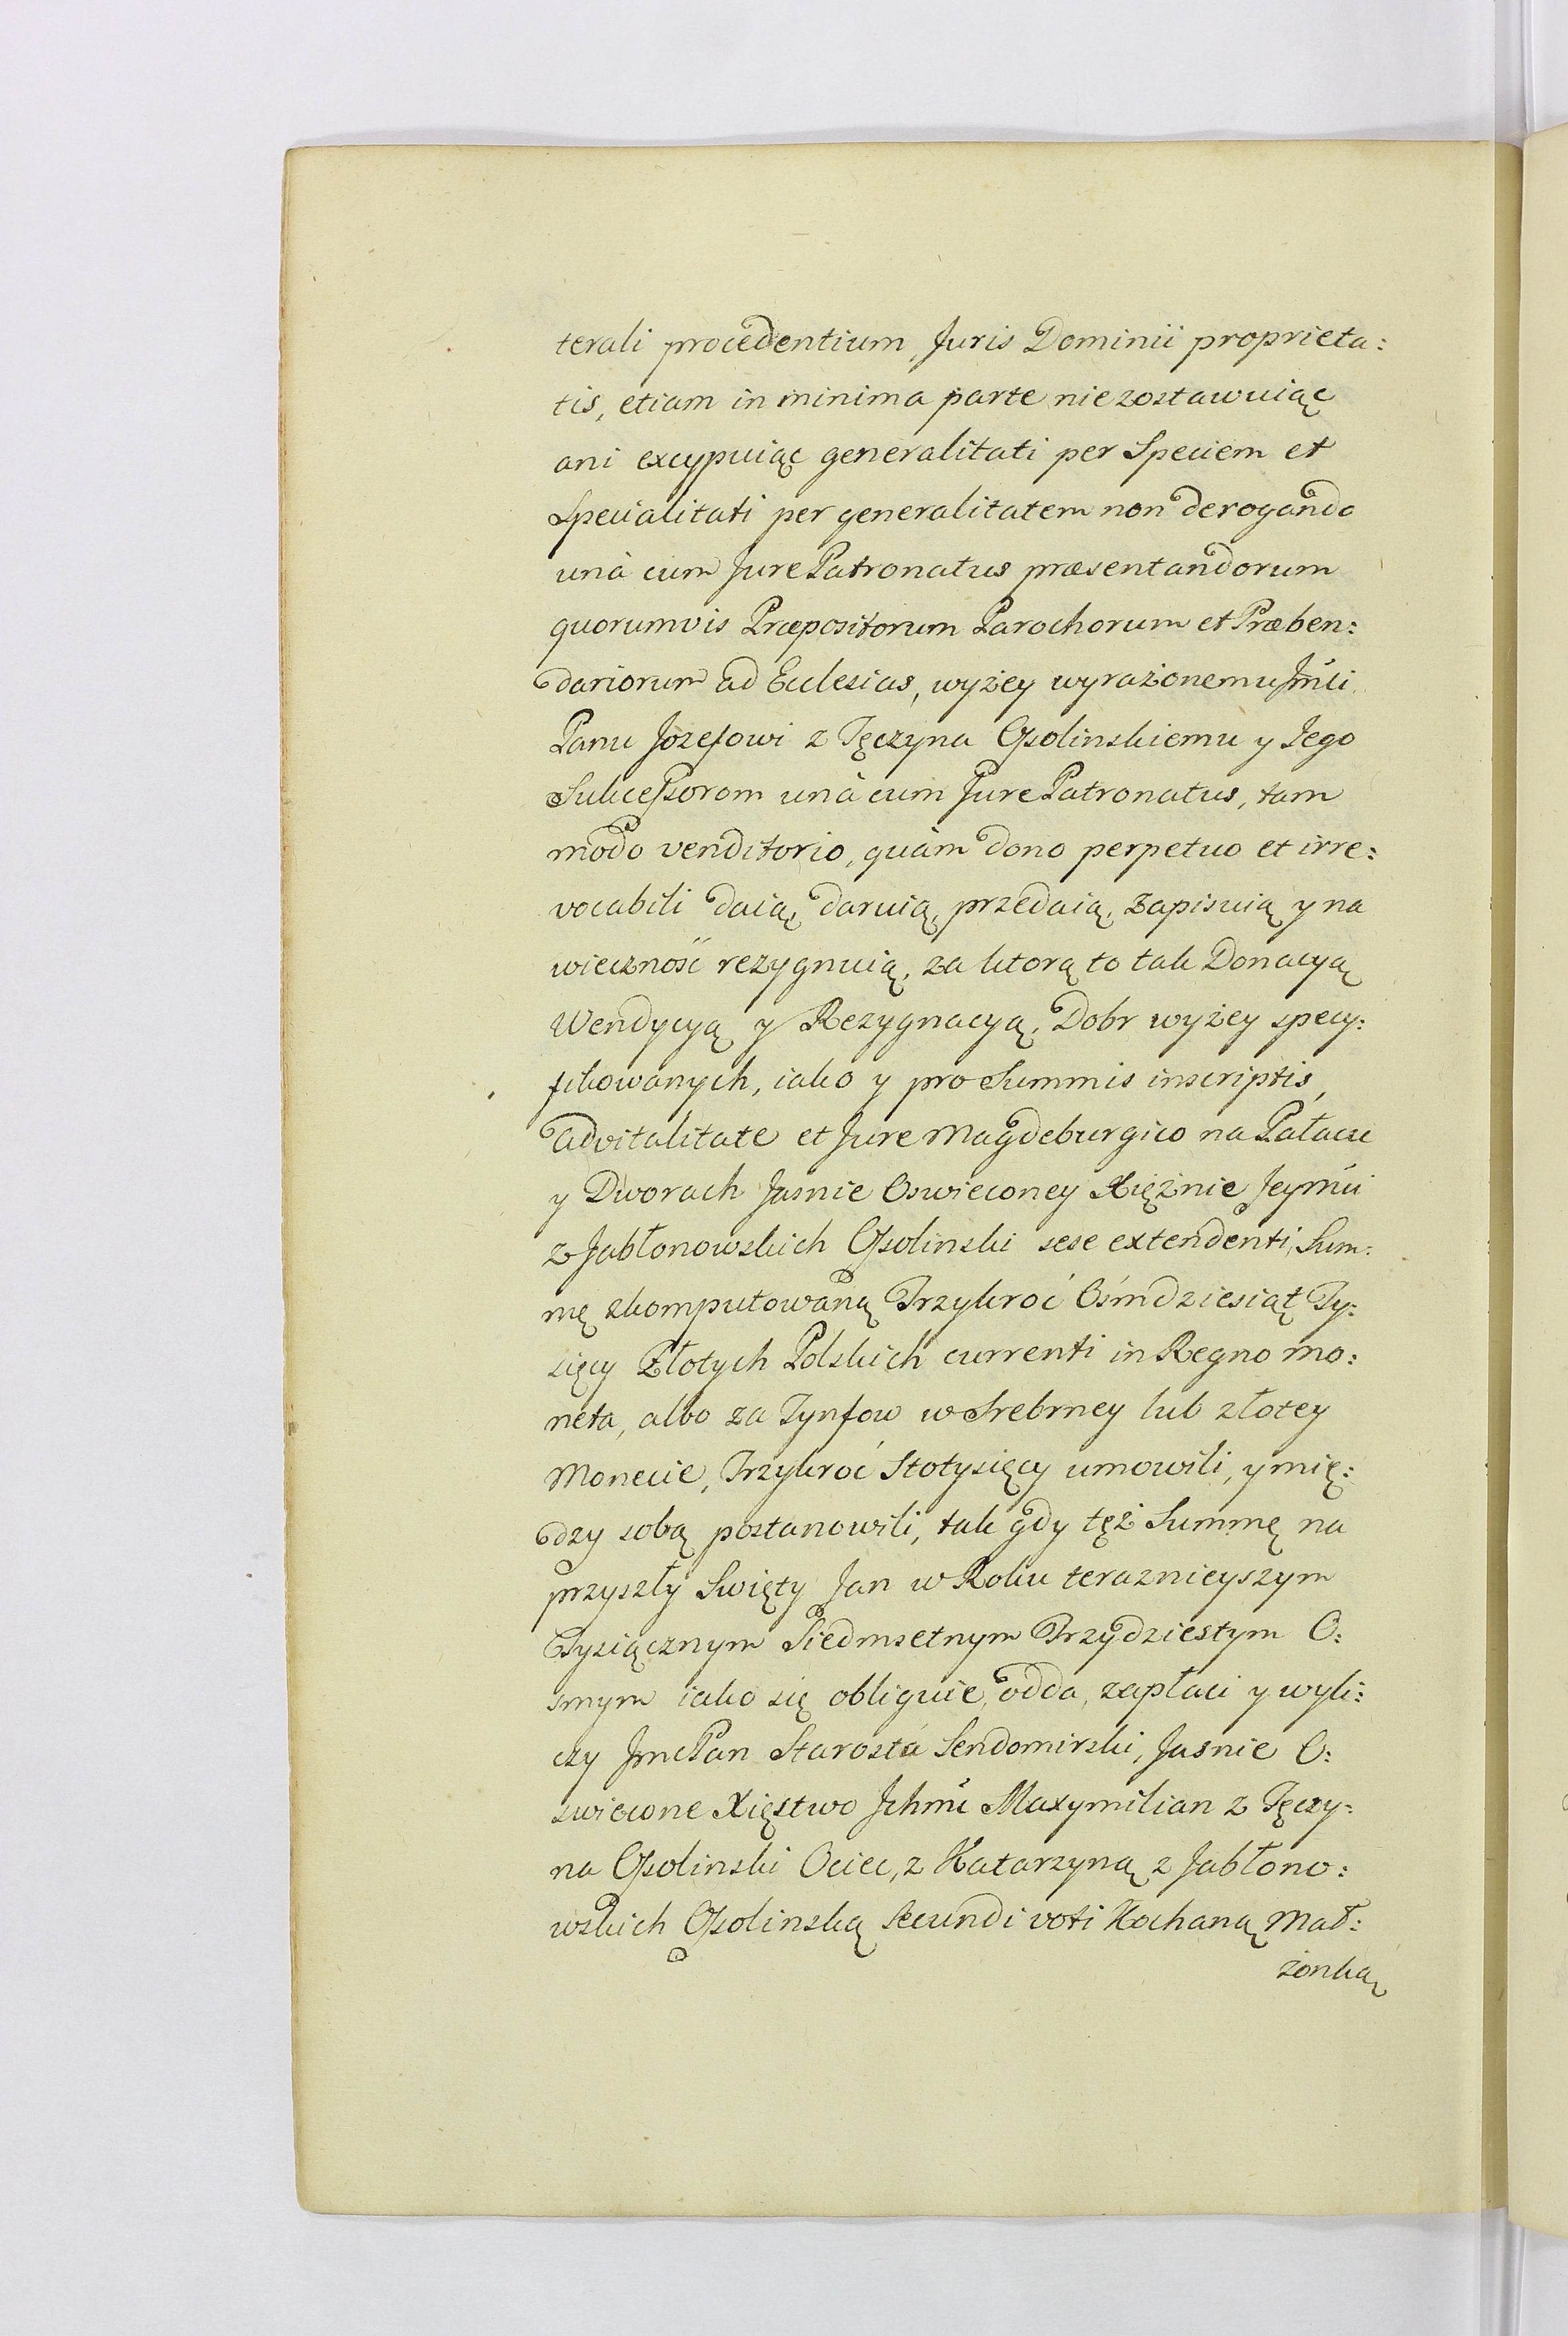 terali procedentium, Juris Dominii proprieta:
tis, etiam in minima parte nie zostawuiąc
ani excypuiąc generalitati per Speciem et
Specialitati per generalitatem non derogando
unà cum Jure Patronatus præsentandorum
quorumvis Præpositorum Parochorum et Præben:
dariorum ad Ecclesias, wyżey wyrażonemu Jmći
Panu Jozefowi z Tęczyna Ossolinskiemu y Jego
Sukcessorom unà cum Jure Patronatus, tam
modo venditorio, quàm dono perpetuo et irre:
vocabili daią, daruią, przedaią, zapisuią y na
wieczność rezygnuią, za ktorą to tak Donacyą
Wendycyą y Rezygnacyą, Dobr wyżey specy:
fikowanych, iako y pro Summis inscriptis,
advitalitate et Jure Magdeburgico na Pałacu
y Dworach Jasnie Oswieconey Xiężnie Jeymći
z Jabłonowskich Ossolinski sese extendenti, Sum:
mę zkomputowaną Trzykroć Ośmdziesiąt Ty:
sięcy Złotych Polskich currenti in Regno mo:
neta, albo za Tynfow w Srebrney lub złotey
Monecie, Trzykroć Stotysięcy umowili, y mię:
dzy sobą postanowili, tak gdy tęż Summę na
przyszły Swięty Jan w Roku teraznieyszym
Tysiącznym Siedmsetnym Trzydziestym O:
smym iako się obliguie, odda, zapłaci y wyli:
czy Jmc Pan Starosta Sendomirski, Jasnie O:
swiecone Xięstwo Jchmć Maxymilian z Tęczy:
na Ossolinski Ociec, z Katarzyną z Jabłono:
wskich Ossolinską secundi voti Kochaną Mał:
żonką